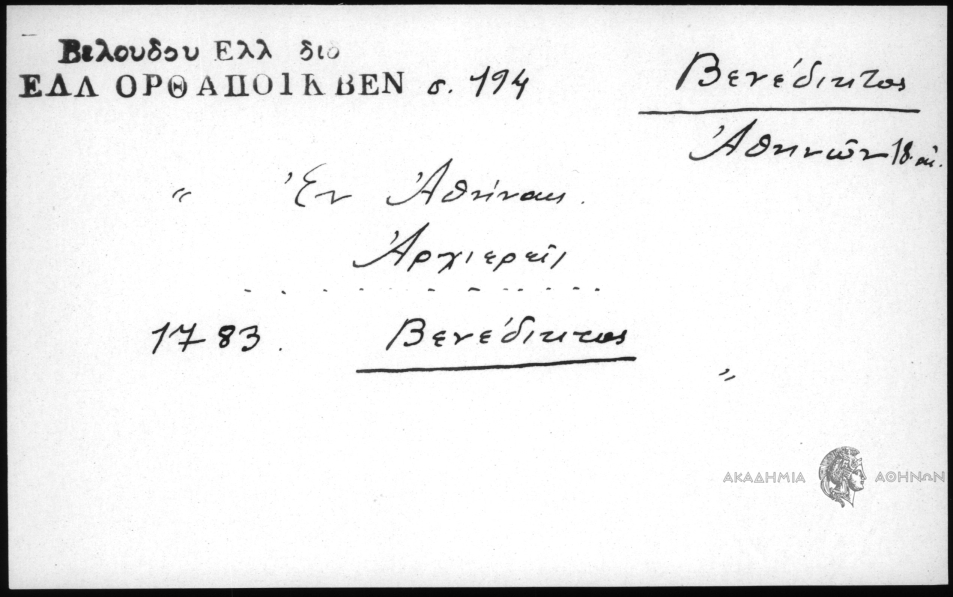 Βελουδου Ελλ διο
ΕΛΛ ΟΡΘ ΑΠΟΙΚ ΒΕΝ σ. 194
Βενέδικτος
Ἀθηνῶν 18 αἰ.
" Ἐν Ἀθήναις.
Ἀρχιερεῖς
. . . . . . . . . . .
1783. Βενέδικτος
"
ΑΚΑΔΗΜΙΑ ΑΘΗΝΩΝ